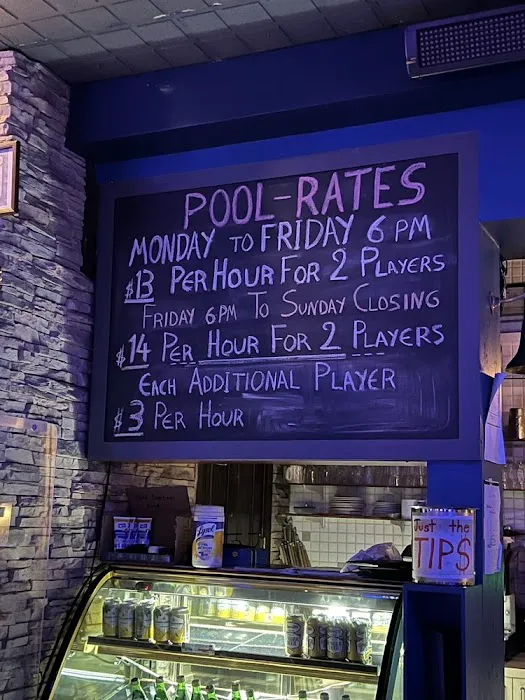 POOL-RATES
MONDAY TO FRIDAY 6 PM
$13 PER HOUR FOR 2 PLAYERS
FRIDAY 6PM TO SUNDAY CLOSING
$14 PER HOUR FOR 2 PLAYERS
EACH ADDITIONAL PLAYER
$3 PER HOUR
Lysol
Just the
TIPS